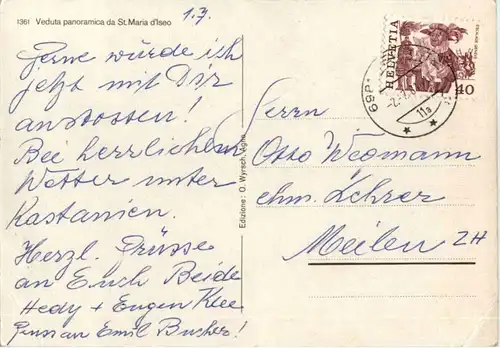 1361 Veduta panoramica da St. Maria d'Iseo
1.7.
Gerne würde ich
jetzt mit Dir
anstossen!
Bei herrlichem
Wetter unter
Kastanien.
Herzl. Grüsse
an Euch Beide
Hedy + Eugen Klee
Gruss an Emil Bucher!
Edizione: O. Wyrsch, Agno
HELVETIA
40
11a
Herrn
Otto Wegmann
ehm. Lehrer
Meilen ZH